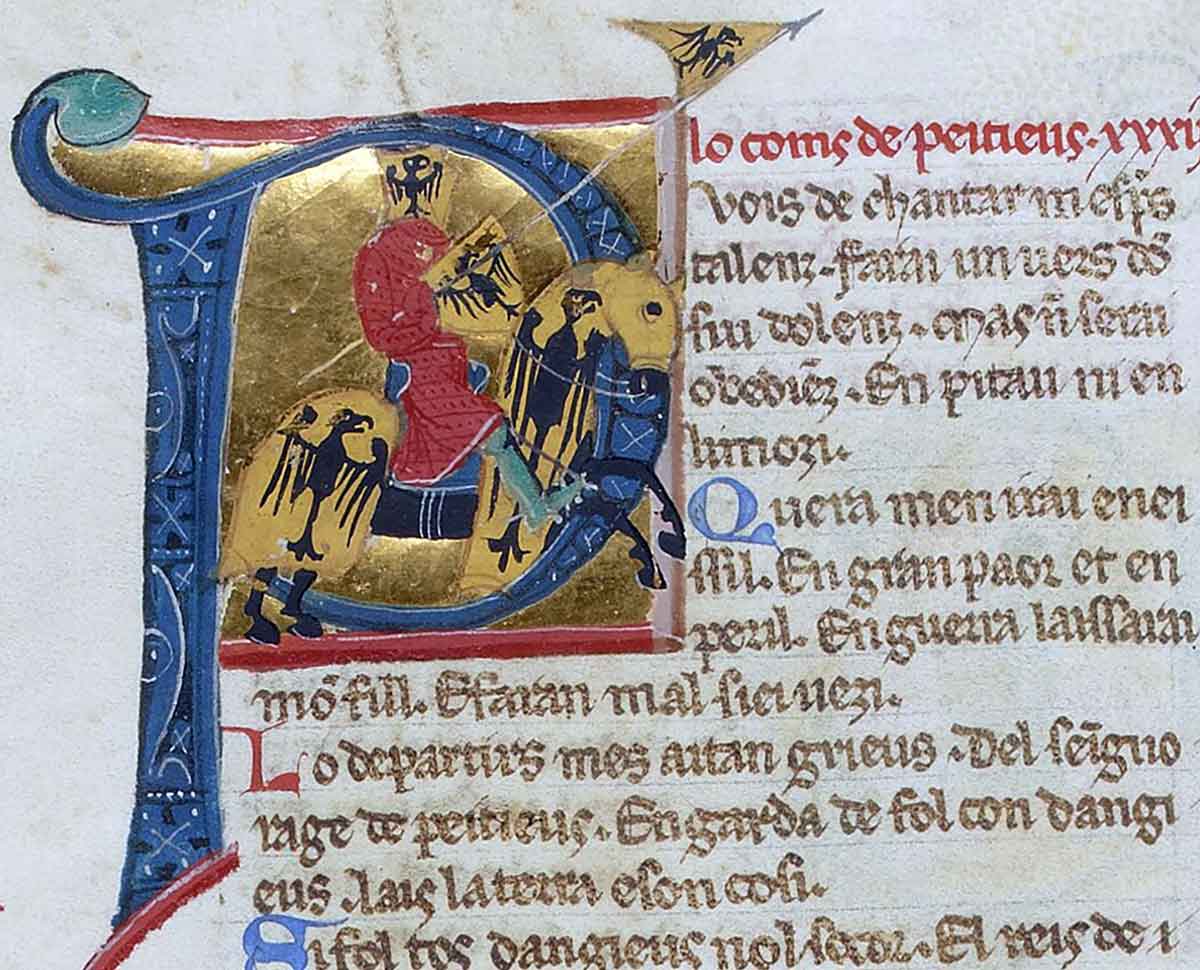 lo coms de peitieus. xxxii
P vois de chantar mes pͥs
talenz. Farai un uers dõ
sui dolenz. Mas ñ serai
obediẽz. En pitau ni en
limozi.
Quera men irai enei
ssil. En gran paor et en
peril. En guerra laissarai
mõ fill. E faran mal siei uezi.
Lo departirs mes aitan grieus. Del seigno
rage de peitieus. En garda de fol con dangi
eus. lais la terra eson cosi.
Si fol cos dangieus nol socor. El reis de